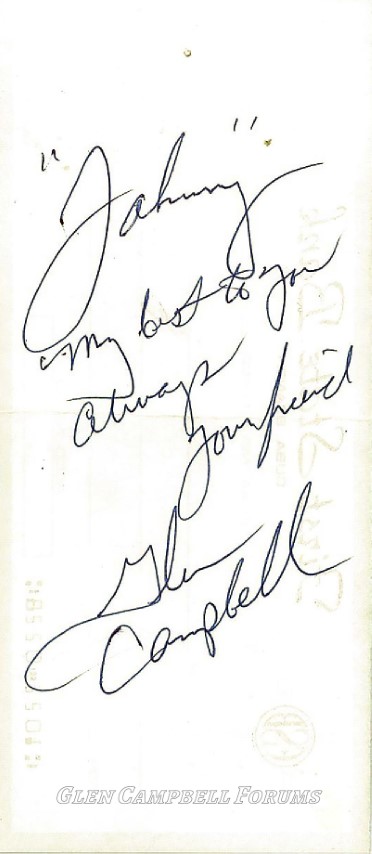 "Johnny"
My best to you
always
Your friend
Glen
Campbell
First State Bank
GLEN CAMPBELL FORUMS